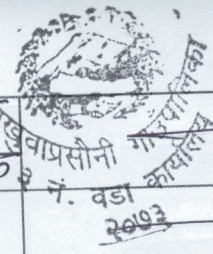 खुवाप्रसौनी गाउँपालिका
३ नं. वडा कार्यालय
२०७३